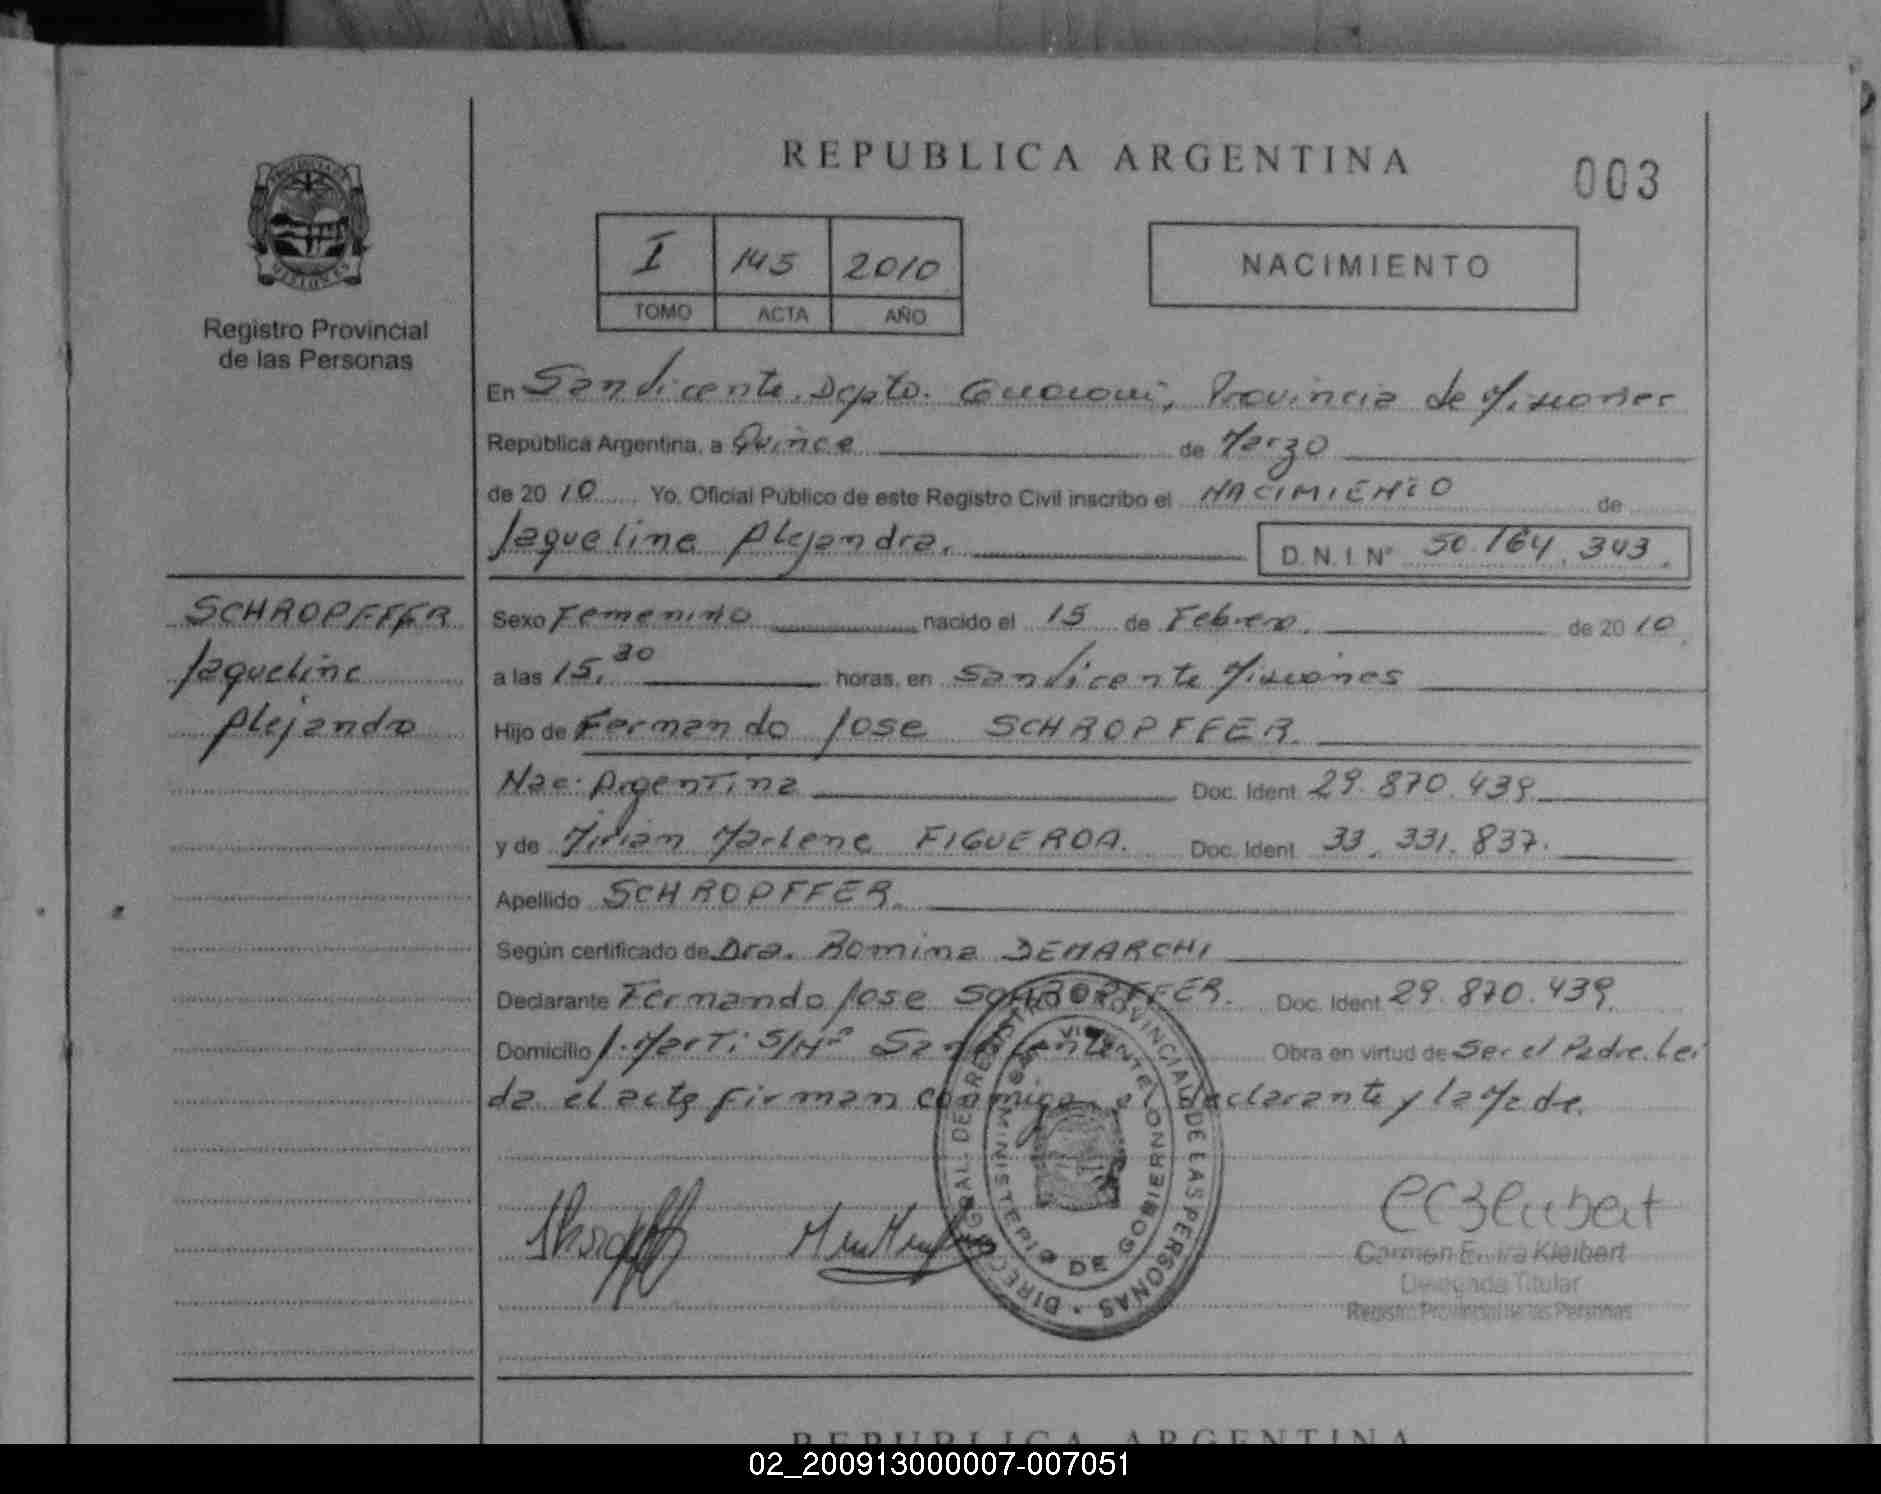 REPUBLICA ARGENTINA
003
Registro Provincial
de las Personas
I 145 2010
TOMO ACTA AÑO
NACIMIENTO
En San Vicente, Depto. Guaraní, Provincia de Misiones
República Argentina, a Quince de Marzo
de 20 10 Yo, Oficial Público de este Registro Civil inscribo el NACIMIENTO de
Jaqueline Alejandra. D.N.I. Nº 50.164.343.
SCHROPFFER
Jaqueline
Alejandra
Sexo Femenino nacido el 15 de Febrero de 20 10
a las 15,30 horas, en San Vicente Misiones
Hijo de Fernando Jose SCHROPFFER.
Nac: Argentina Doc. Ident. 29.870.439
y de Mirian Marlene FIGUEROA. Doc. Ident. 33.331.837.
Apellido SCHROPFFER.
Según certificado de Dra. Romina DEMARCHI
Declarante Fernando Jose SCHROPFFER. Doc. Ident. 29.870.439.
Domicilio J. Marti S/Nº San Vicente Obra en virtud de Ser el Padre. Lei
da el acta firman conmigo el declarante y la Madre.
DIRECC. GRAL. DEL REGISTRO PROVINCIAL DE LAS PERSONAS
MINISTERIO DE GOBIERNO
SAN VICENTE
Carmen Elvira Kleibert
Delegada Titular
Registro Provincial de las Personas
REPUBLICA ARGENTINA
02_200913000007-007051